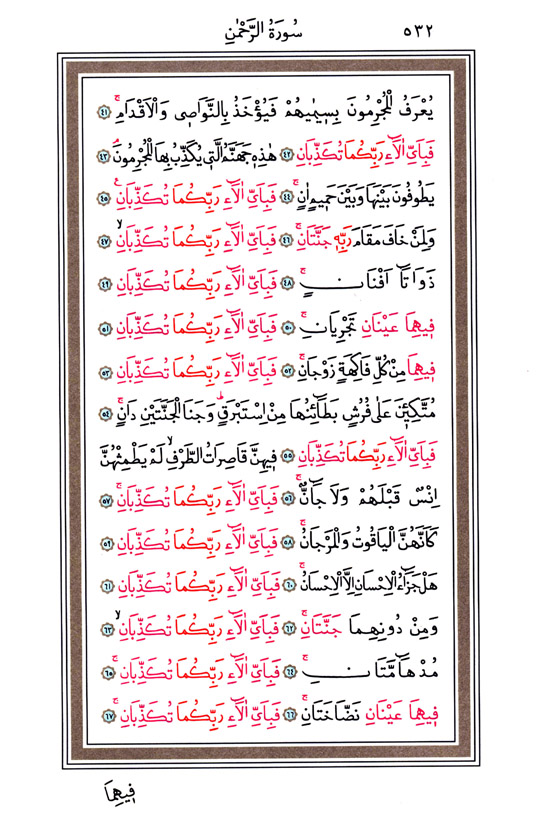 ٥٣٢ سُورَةُ الرَّحْمٰنِ
يُعْرَفُ الْمُجْرِمُونَ بِسِيمٰيهُمْ فَيُؤْخَذُ بِالنَّوَاصِى وَالْاَقْدَامِۚ ﴿٤١﴾
فَبِاَىِّ اٰلَٓاءِ رَبِّكُمَا تُكَذِّبَانِ ﴿٤٢﴾ هٰذِهٖ جَهَنَّمُ الَّتٖى يُكَذِّبُ بِهَا الْمُجْرِمُونَۢ ﴿٤٣﴾
يَطُوفُونَ بَيْنَهَا وَبَيْنَ حَمٖيمٍ اٰنٍۚ ﴿٤٤﴾ فَبِاَىِّ اٰلَٓاءِ رَبِّكُمَا تُكَذِّبَانِ۟ ﴿٤٥﴾
وَلِمَنْ خَافَ مَقَامَ رَبِّهٖ جَنَّتَانِۚ ﴿٤٦﴾ فَبِاَىِّ اٰلَٓاءِ رَبِّكُمَا تُكَذِّبَانِۙ ﴿٤٧﴾
ذَوَاتَٓا اَفْنَانٍۚ ﴿٤٨﴾ فَبِاَىِّ اٰلَٓاءِ رَبِّكُمَا تُكَذِّبَانِ ﴿٤٩﴾
فٖيهِمَا عَيْنَانِ تَجْرِيَانِۚ ﴿٥٠﴾ فَبِاَىِّ اٰلَٓاءِ رَبِّكُمَا تُكَذِّبَانِ ﴿٥١﴾
فٖيهِمَا مِنْ كُلِّ فَاكِهَةٍ زَوْجَانِۚ ﴿٥٢﴾ فَبِاَىِّ اٰلَٓاءِ رَبِّكُمَا تُكَذِّبَانِۚ ﴿٥٣﴾
مُتَّكِـٖٔينَ عَلٰى فُرُشٍ بَطَٓائِنُهَا مِنْ اِسْتَبْرَقٍۜ وَجَنَا الْجَنَّتَيْنِ دَانٍۚ ﴿٥٤﴾
فَبِاَىِّ اٰلَٓاءِ رَبِّكُمَا تُكَذِّبَانِ ﴿٥٥﴾ فٖيهِنَّ قَاصِرَاتُ الطَّرْفِۙ لَمْ يَطْمِثْهُنَّ
اِنْسٌ قَبْلَهُمْ وَلَا جَٓانٌّۚ ﴿٥٦﴾ فَبِاَىِّ اٰلَٓاءِ رَبِّكُمَا تُكَذِّبَانِۚ ﴿٥٧﴾
كَاَنَّهُنَّ الْيَاقُوتُ وَالْمَرْجَانُۚ ﴿٥٨﴾ فَبِاَىِّ اٰلَٓاءِ رَبِّكُمَا تُكَذِّبَانِ ﴿٥٩﴾
هَلْ جَزَٓاءُ الْاِحْسَانِ اِلَّا الْاِحْسَانُۚ ﴿٦٠﴾ فَبِاَىِّ اٰلَٓاءِ رَبِّكُمَا تُكَذِّبَانِ ﴿٦١﴾
وَمِنْ دُونِهِمَا جَنَّتَانِۚ ﴿٦٢﴾ فَبِاَىِّ اٰلَٓاءِ رَبِّكُمَا تُكَذِّبَانِۙ ﴿٦٣﴾
مُدْهَٓامَّتَانِۚ ﴿٦٤﴾ فَبِاَىِّ اٰلَٓاءِ رَبِّكُمَا تُكَذِّبَانِۚ ﴿٦٥﴾
فٖيهِمَا عَيْنَانِ نَضَّاخَتَانِۚ ﴿٦٦﴾ فَبِاَىِّ اٰلَٓاءِ رَبِّكُمَا تُكَذِّبَانِۚ ﴿٦٧﴾
فٖيهِمَا